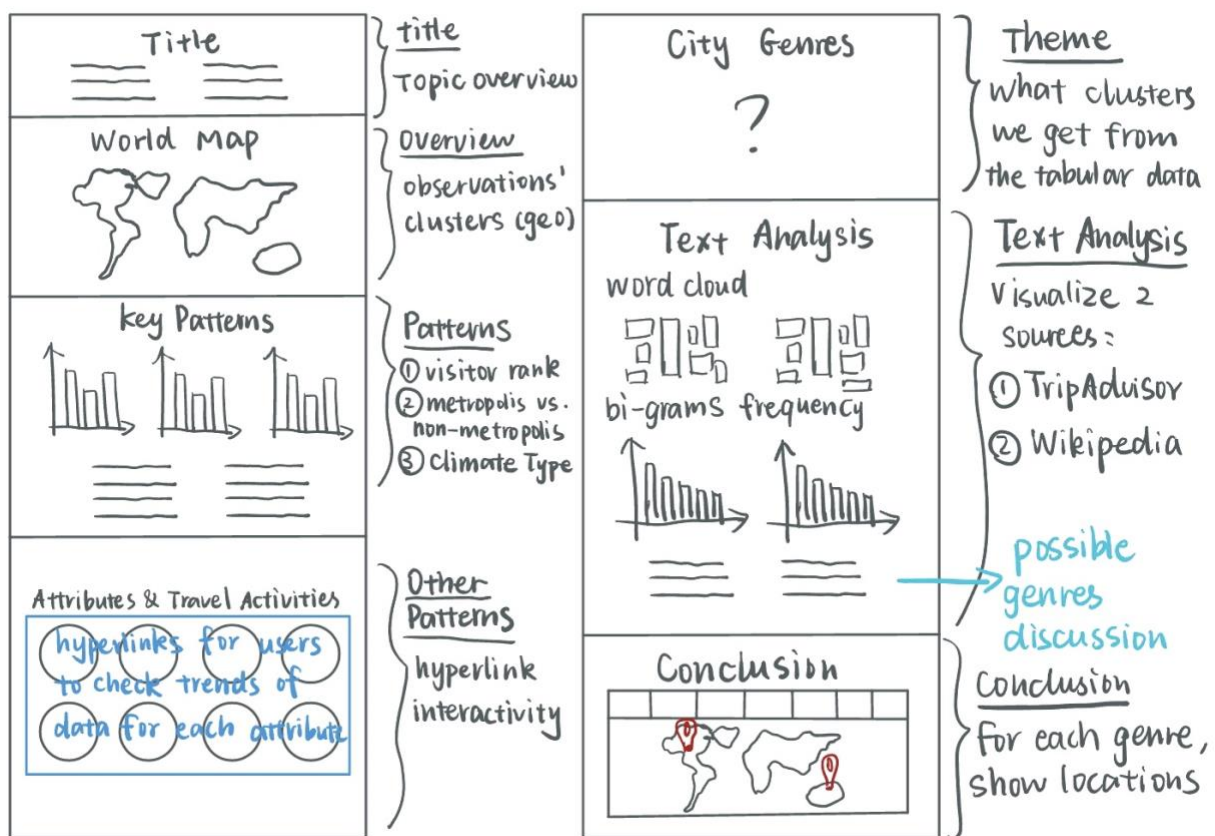 Title
title
Topic overview
World Map
Overview
observations'
clusters (geo)
key Patterns
Patterns
① visitor rank
② metropolis vs.
non-metropolis
③ Climate Type
Attributes & Travel Activities
hyperlinks for users
to check trends of
data for each attribute
Other
Patterns
hyperlink
interactivity
City Genres
?
Theme
what clusters
we get from
the tabular data
Text Analysis
word cloud
bi-grams frequency
Text Analysis
Visualize 2
sources:
① TripAdvisor
② Wikipedia
possible
genres
discussion
Conclusion
Conclusion
For each genre,
show locations